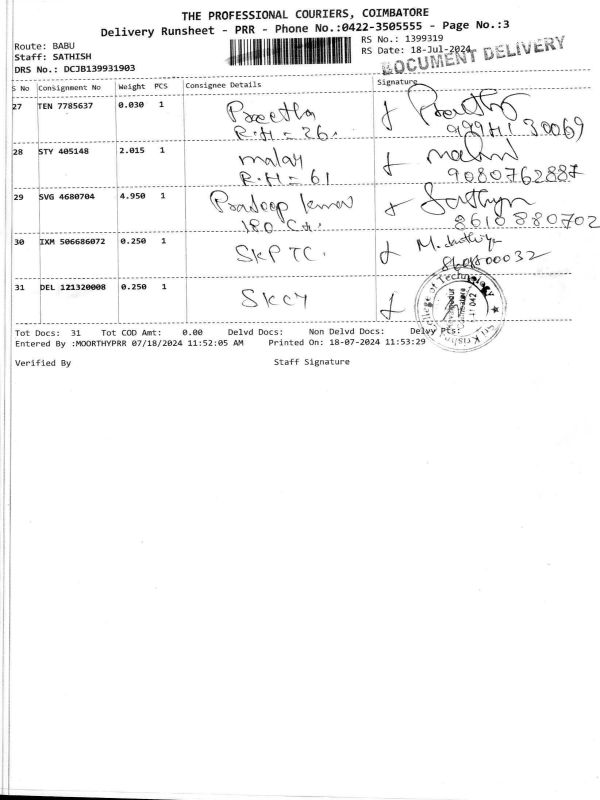 THE PROFESSIONAL COURIERS, COIMBATORE
Delivery Runsheet - PRR - Phone No.:0422-3505555 - Page No.:3
Route: BABU
Staff: SATHISH
DRS No.: DCJB139931903
RS No.: 1399319
RS Date: 18-Jul-2024
DOCUMENT DELIVERY
S No Consignment No Weight PCS Consignee Details Signature
27 TEN 7785637 0.030 1 Preetha
R.H = 26.
28 STY 405148 2.015 1 malar
R.H = 61 9080762887
29 SVG 4680704 4.950 1 Pradeep kumar
180 8610880702
30 IXM 506686072 0.250 1 SKPTC.
31 DEL 121320008 0.250 1 SKCT
College of Technology
Sri Krishna
Tot Docs: 31 Tot COD Amt: 0.00 Delvd Docs: Non Delvd Docs: Delvy Pts:
Entered By :MOORTHYPRR 07/18/2024 11:52:05 AM Printed On: 18-07-2024 11:53:29
Verified By Staff Signature